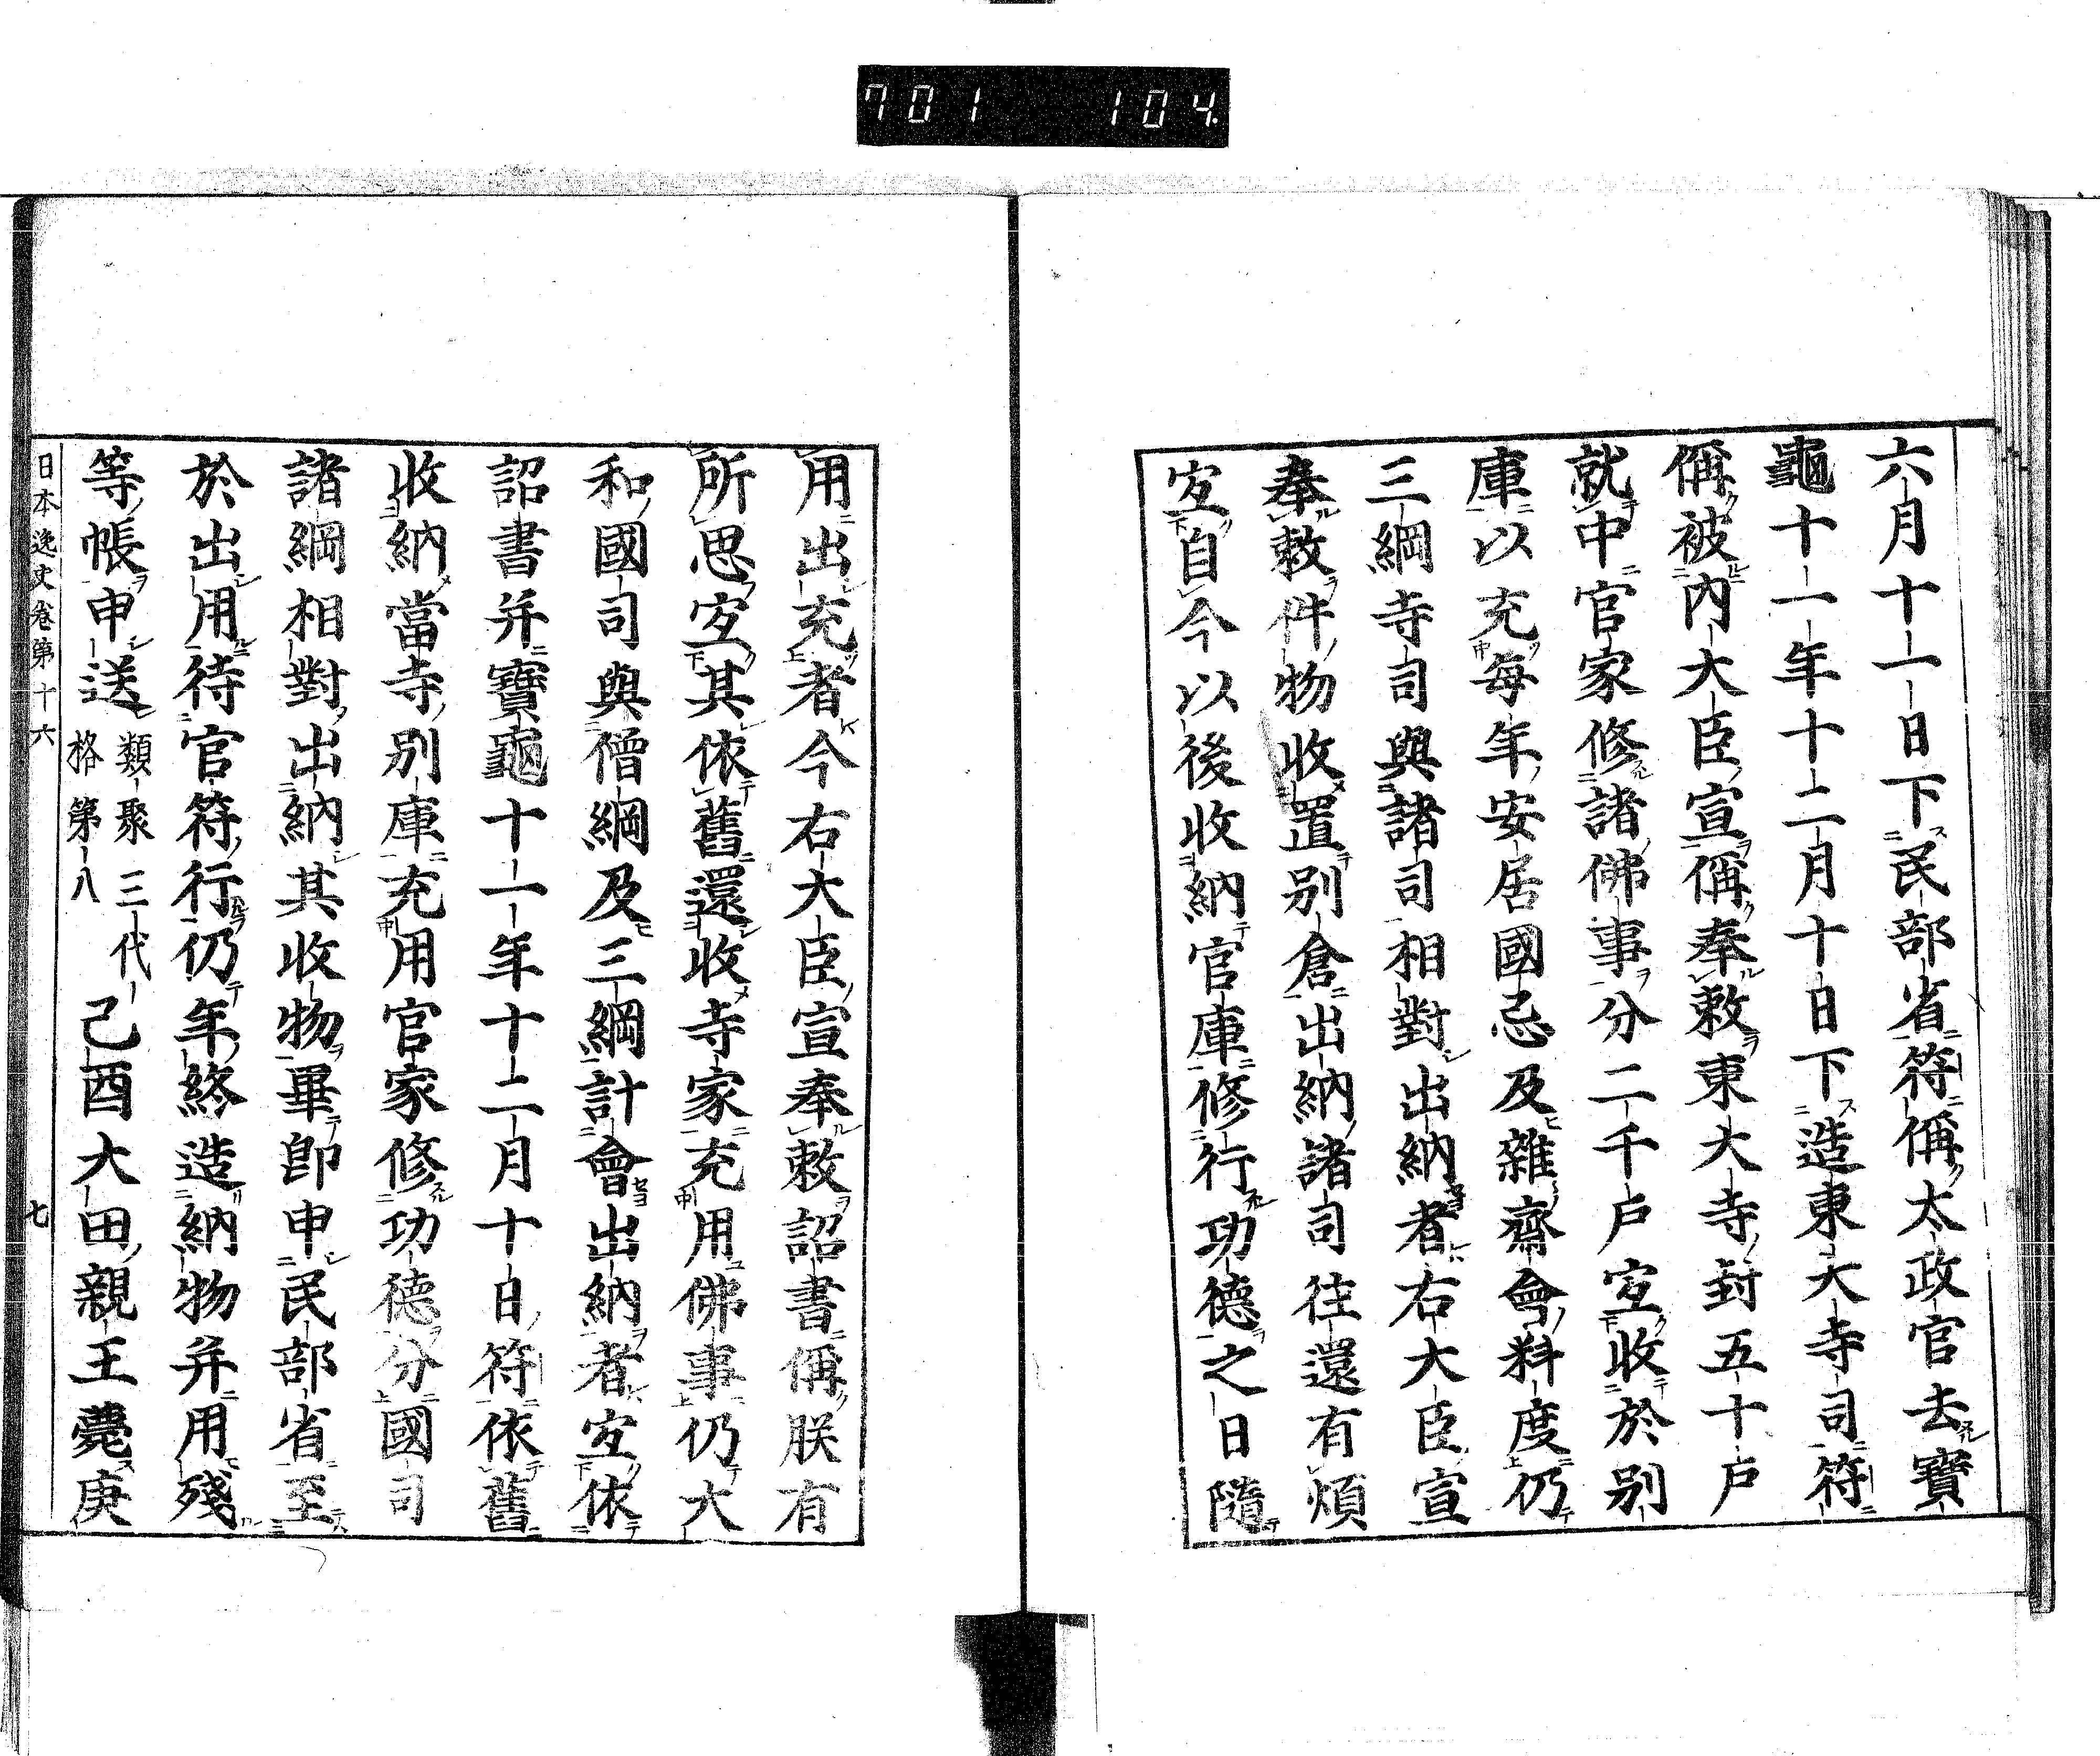 701 104.
六月十一日下民部省符偁太政官去寶
龜十一年十二月十日下造東大寺司符
偁被內大臣宣偁奉敕東大寺封五十戶
就中官家修諸佛事分二千戶宜收於別
庫以充每年安居國忌及雜齋會料度仍
三綱寺司與諸司相對出納者右大臣宣
奉敕件物收置別倉出納諸司往還有煩
宜自今以後收納官庫修行功德之日隨
用出充者今右大臣宣奉敕詔書偁朕有
所思宜其依舊還收寺家充用佛事仍大
和國司與僧綱及三綱計會出納者宜依
詔書并寶龜十一年十二月十日符依舊
收納當寺別庫充用官家修功德分國司
諸綱相對出納其收物畢即申民部省至
於出用待官符行仍年終造納物并用殘
等帳申送類聚三代格第八己酉大田親王薨庚
日本逸史卷第十六 七